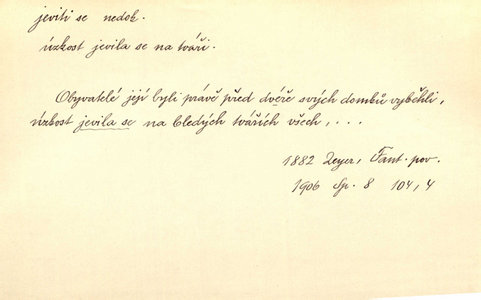 jeviti se nedok.
úzkost jevila se na tváři.
Obyvatelé její byli právě před dvéře svých domků vyběhli,
úzkost jevila se na bledých tvářích všech, . . .
1882 Zeyer, Fant. pov.
1906 Sp. 8 104, 4